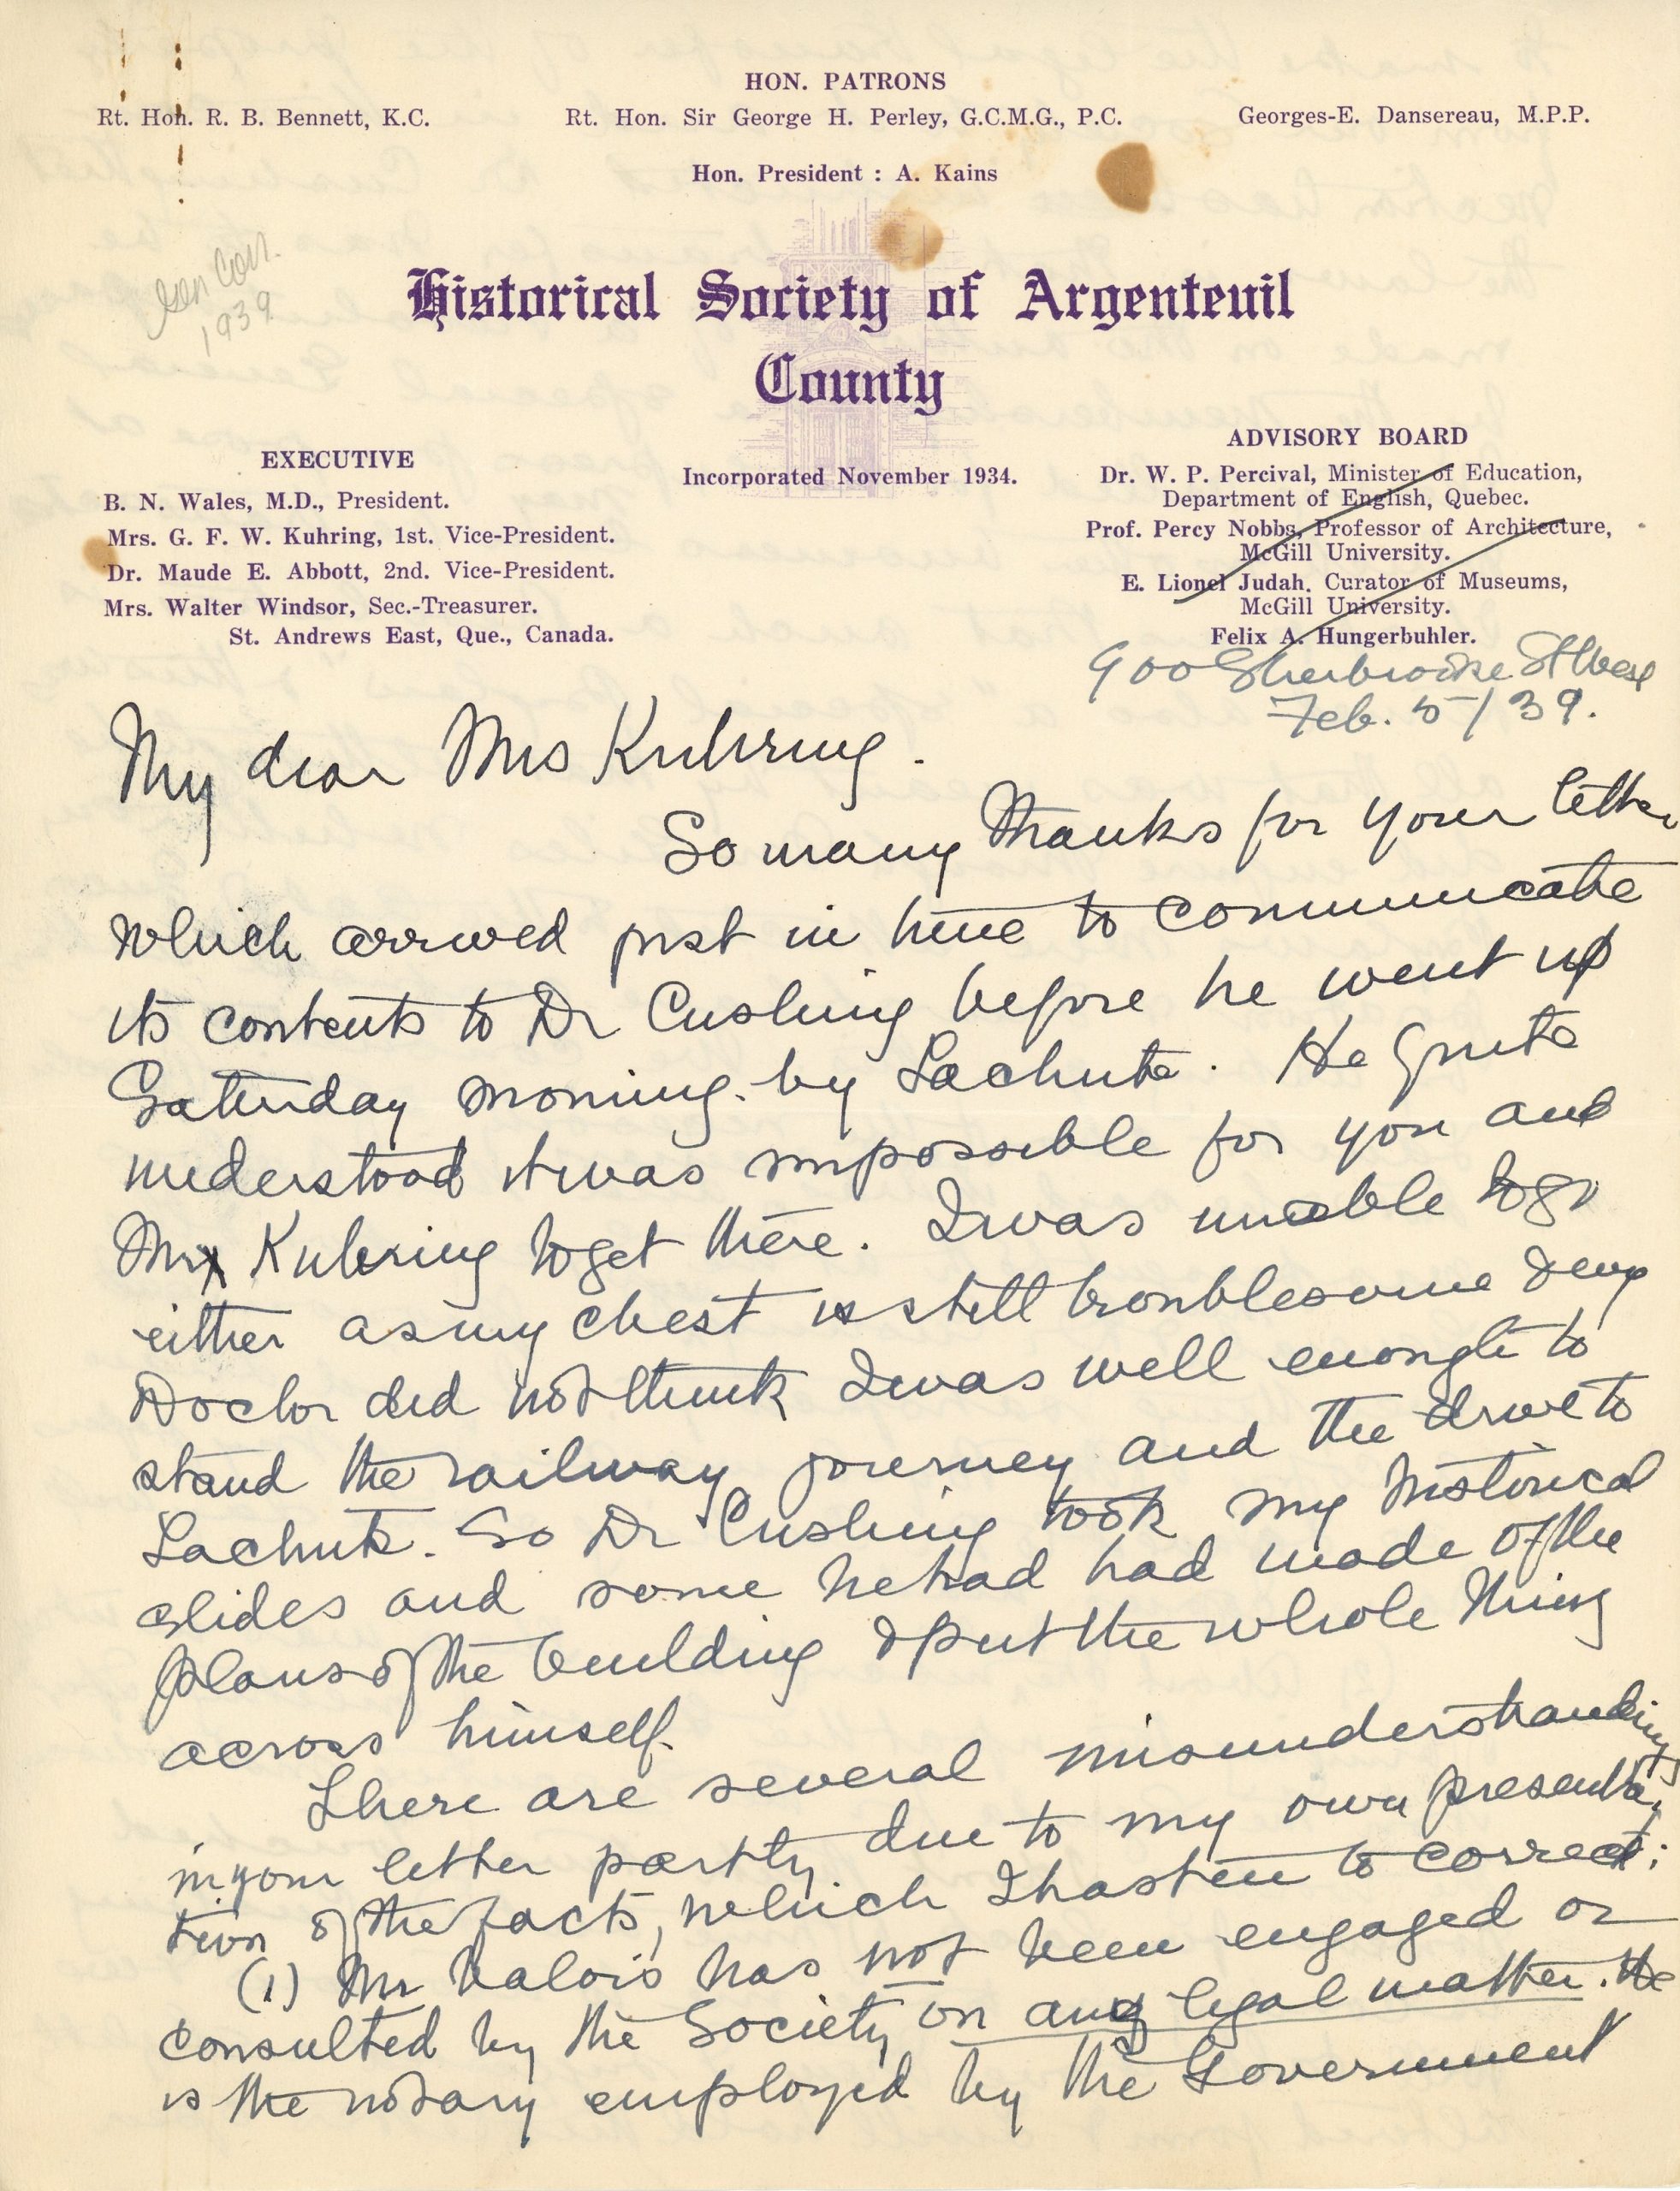 HON. PATRONS
Rt. Hon. R. B. Bennett, K.C. Rt. Hon. Sir George H. Perley, G.C.M.G., P.C. Georges-E. Dansereau, M.P.P.
Hon. President : A. Kains
Gen Corr.
1939
Historical Society of Argenteuil
County
Incorporated November 1934.
EXECUTIVE
B. N. Wales, M.D., President.
Mrs. G. F. W. Kuhring, 1st. Vice-President.
Dr. Maude E. Abbott, 2nd. Vice-President.
Mrs. Walter Windsor, Sec.-Treasurer.
St. Andrews East, Que., Canada.
ADVISORY BOARD
Dr. W. P. Percival, Minister of Education,
Department of English, Quebec.
Prof. Percy Nobbs, Professor of Architecture,
McGill University.
E. Lionel Judah. Curator of Museums,
McGill University.
Felix A. Hungerbuhler.
900 Sherbrooke St West
Feb. 5/39.
My dear Mrs Kuhring.
So many thanks for your letter
which arrived just in time to communicate
its contents to Dr Cushing before he went up
Saturday morning. by Lachute. He quite
understood it was impossible for you and
Mr Kuhring to get there. I was unable to go
either as my chest is still troublesome & my
Doctor did not think I was well enough to
stand the railway journey and the drive to
Lachute. So Dr Cushing took my historical
slides and some he had had made of the
plans of the building & put the whole thing
across himself.
There are several misunderstandings
in your letter partly due to my own presenta-
tion of the facts, which I hasten to correct:
(1) Mr Valois has not been engaged or
consulted by the Society on any legal matter. He
is the notary employed by the Government